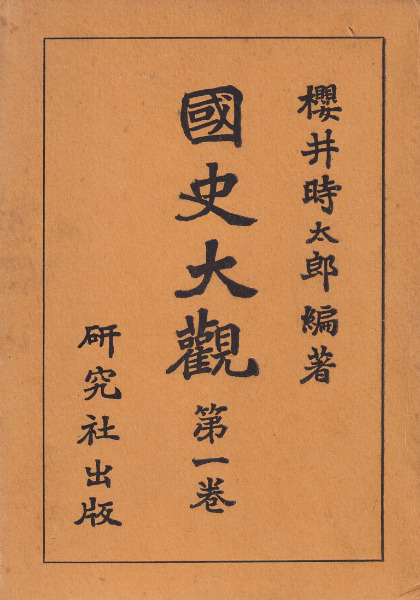 櫻井時太郎編著
國史大觀第一卷
研究社出版